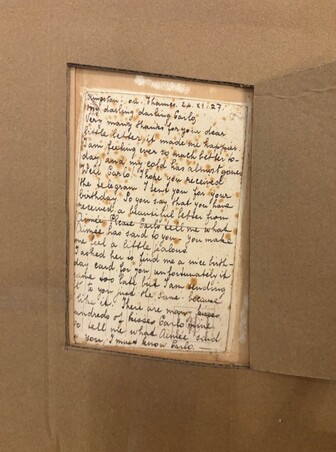 Kingston: on. Thames. 24. XI. 27.
My darling darling Carlo,
Very many thanks for your dear
little letter, it made me happier
I am feeling ever so much better to-
day and my cold has almost gone.
Well Carlo. I hope you received
the telegram I sent you for your
birthday. So you say that you have
received a beautiful letter from
Aimée. Please Carlo tell me what
Aimée has said to you. you made
me feel a little jealous
I asked her to find me a nice birth-
day card for you, unfortunately it
came too late but I am sending
it to you just the same. because
I like it. There are many
hundreds of kisses Carlo mine
to tell me what Aimée said
you, I must know Carlo.